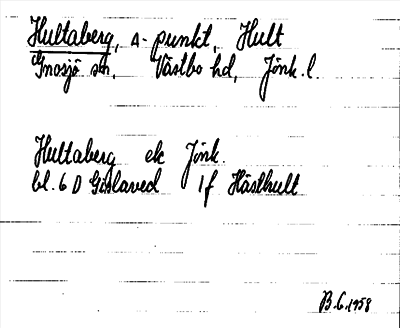 Hultaberg, s-punkt, Hult
Gnosjö sn, Västbo hd, Jönk. l.
Hultaberg ek Jönk.
bl. 6 D Gislaved 1f Hästhult
B.G. 1958